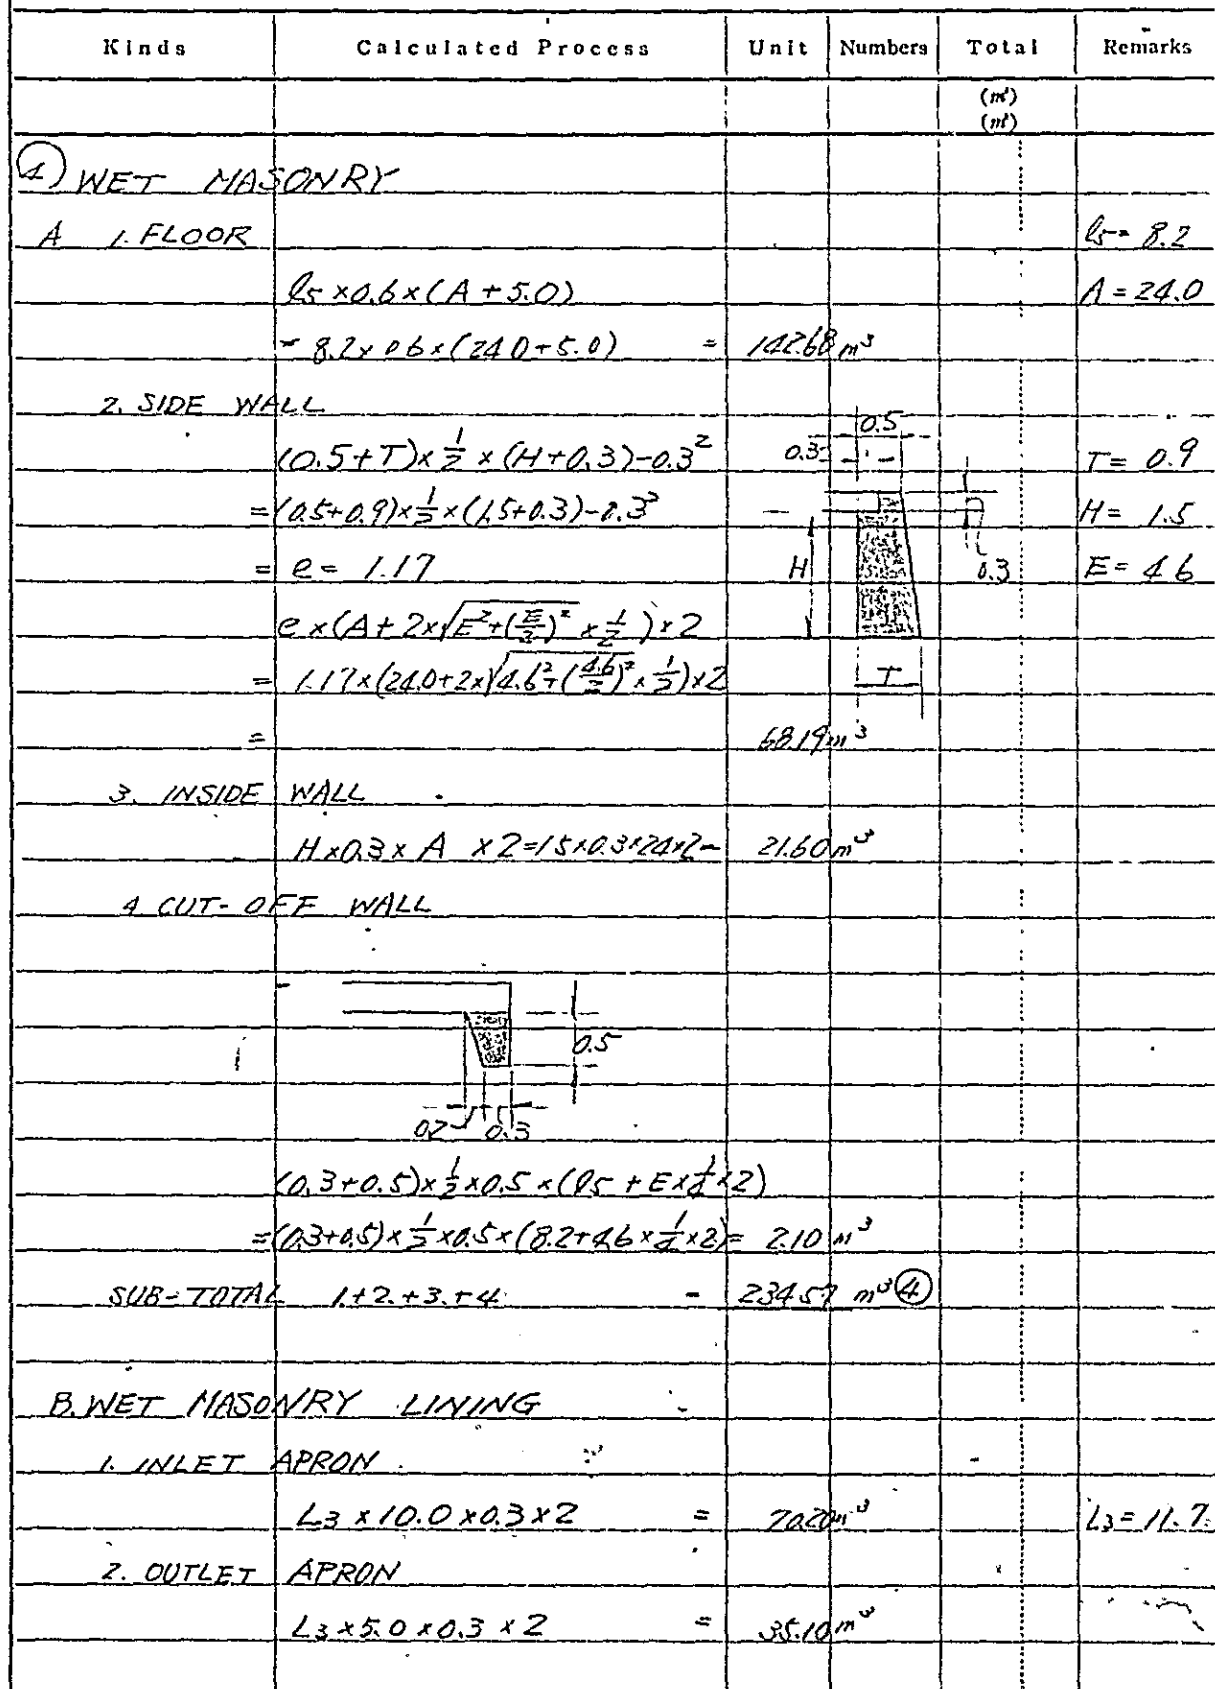 Kinds Calculated Process Unit Numbers Total Remarks
(m³)
(m²)
④ WET MASONRY
A 1. FLOOR l5 = 8.2
l5 × 0.6 × (A + 5.0) A = 24.0
= 8.2 × 0.6 × (24.0 + 5.0) = 142.68 m³
2. SIDE WALL
0.5
(0.5 + T) × 1/2 × (H + 0.3) - 0.3² 0.3 T = 0.9
= (0.5 + 0.9) × 1/2 × (1.5 + 0.3) - 0.3² H = 1.5
= e = 1.17 H 0.3 E = 4.6
e × (A + 2 × √(E² + (E/2)²) × 1/2) × 2
= 1.17 × (24.0 + 2 × √(4.6² + (4.6/2)²) × 1/2) × 2 T
= 68.19 m³
3. INSIDE WALL
H × 0.3 × A × 2 = 1.5 × 0.3 × 24 × 2 = 21.60 m³
4. CUT-OFF WALL
0.5
0.2 0.3
(0.3 + 0.5) × 1/2 × 0.5 × (l5 + E × 1/4 × 2)
= (0.3 + 0.5) × 1/2 × 0.5 × (8.2 + 4.6 × 1/4 × 2) = 2.10 m³
SUB-TOTAL 1. + 2. + 3. + 4 = 234.57 m³ ④
B. WET MASONRY LINING
1. INLET APRON
L3 × 10.0 × 0.3 × 2 = 70.20 m³ L3 = 11.7
2. OUTLET APRON
L3 × 5.0 × 0.3 × 2 = 35.10 m³